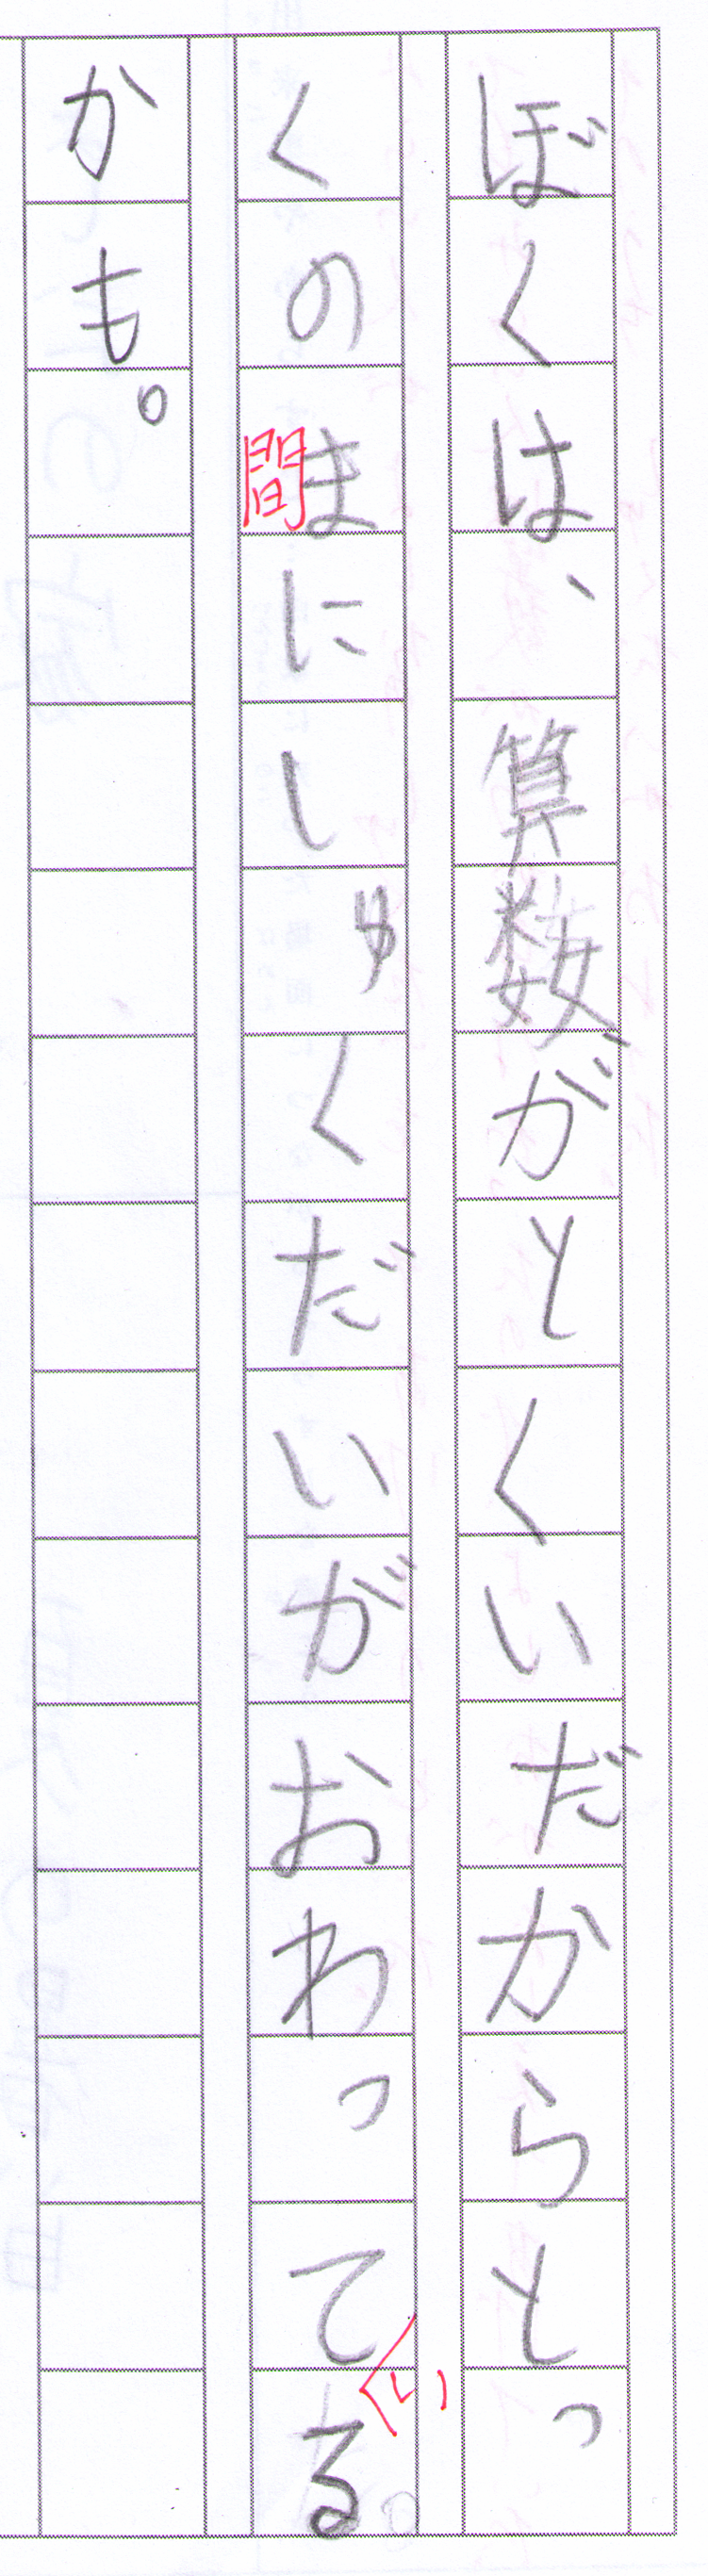 ぼくは、算数がとくいだからとっ
くのま間にしゅくだいがおわっている
かも。